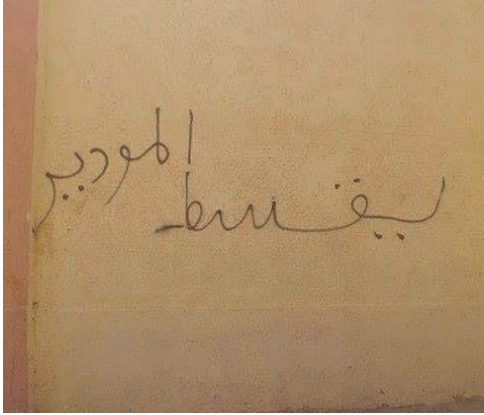 يقسط المودير